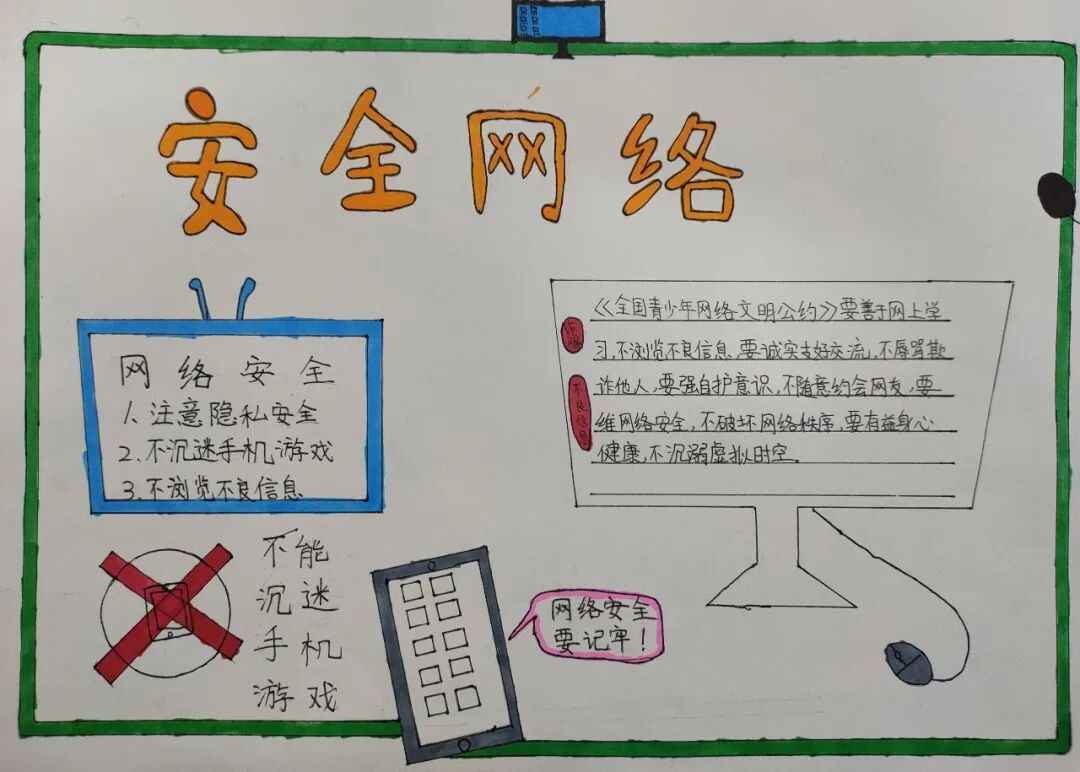 安全网络
网络安全
1.注意隐私安全
2.不沉迷手机游戏
3.不浏览不良信息
不能
沉迷
手机
游戏
网络安全
要记牢！
诈骗
不良信息
《全国青少年网络文明公约》要善于网上学
习,不浏览不良信息,要诚实友好交流,不辱骂欺
诈他人,要强自护意识,不随意约会网友,要
维网络安全,不破坏网络秩序,要有益身心
健康,不沉溺虚拟时空。